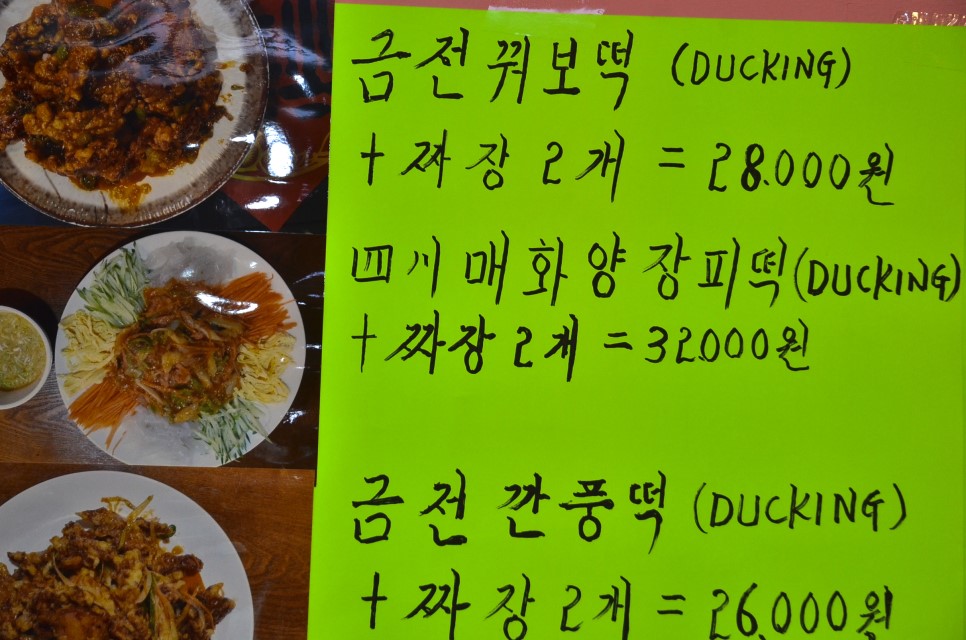 금전꿔보떡 (DUCKING)
+ 짜장 2개 = 28.000원
四川매화양장피떡(DUCKING)
+ 짜장 2개 = 32.000원
금전깐풍떡 (DUCKING)
+ 짜장 2개 = 26.000원